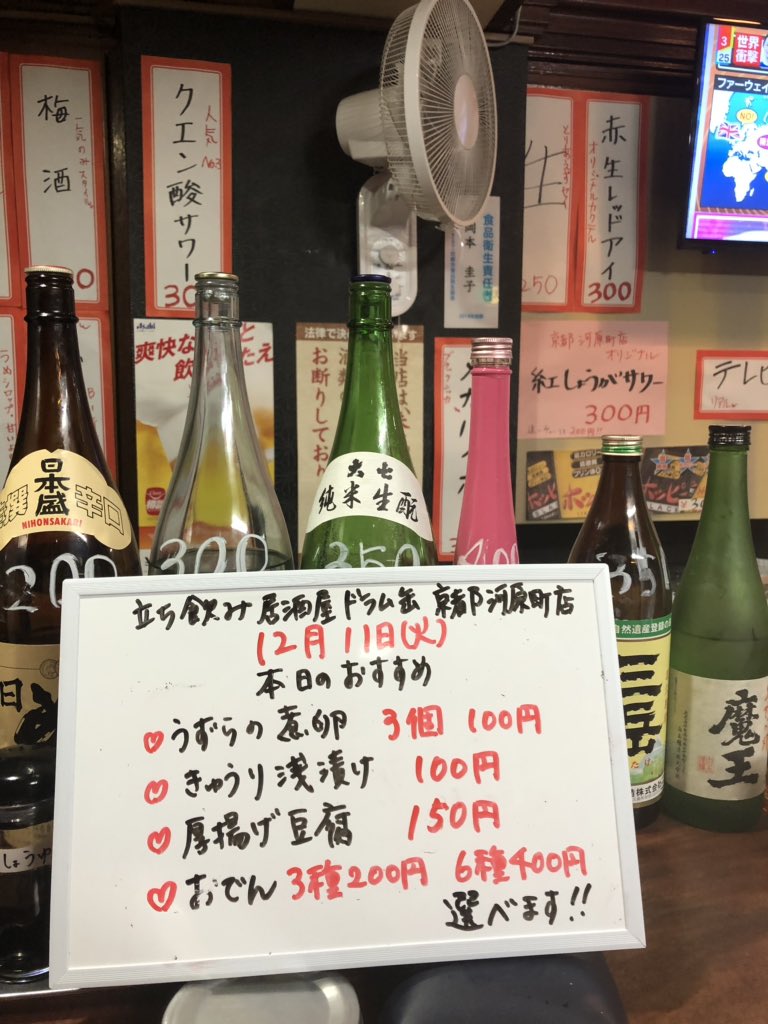 梅酒
一気のみスタイル
クエン酸サワー
人気No3
30
食品衛生責任者
岡本 圭子
生
とりあえずセイ
250
赤生レッドアイ
オリジナルカクテル
300
3
25
世界
衝撃
ファーウェイ
NO!
京都河原町店
オリジナル
紅しょうがサワー
300円
テレビ
Asahi
爽快な
飲
たえ
法律で
お断りしており
当店は、
日本盛
辛口
NIHONSAKARI
200
300
大七
純米生酛
350
自然遺産登録の
三岳
たけ
株式会社
魔王
しょうゆ
立ち飲み居酒屋ドラム缶 京都河原町店
12月11日(火)
本日のおすすめ
♡うずらの煮卵 3個 100円
♡きゅうり浅漬け 100円
♡厚揚げ豆腐 150円
♡おでん 3種200円 6種400円
選べます!!